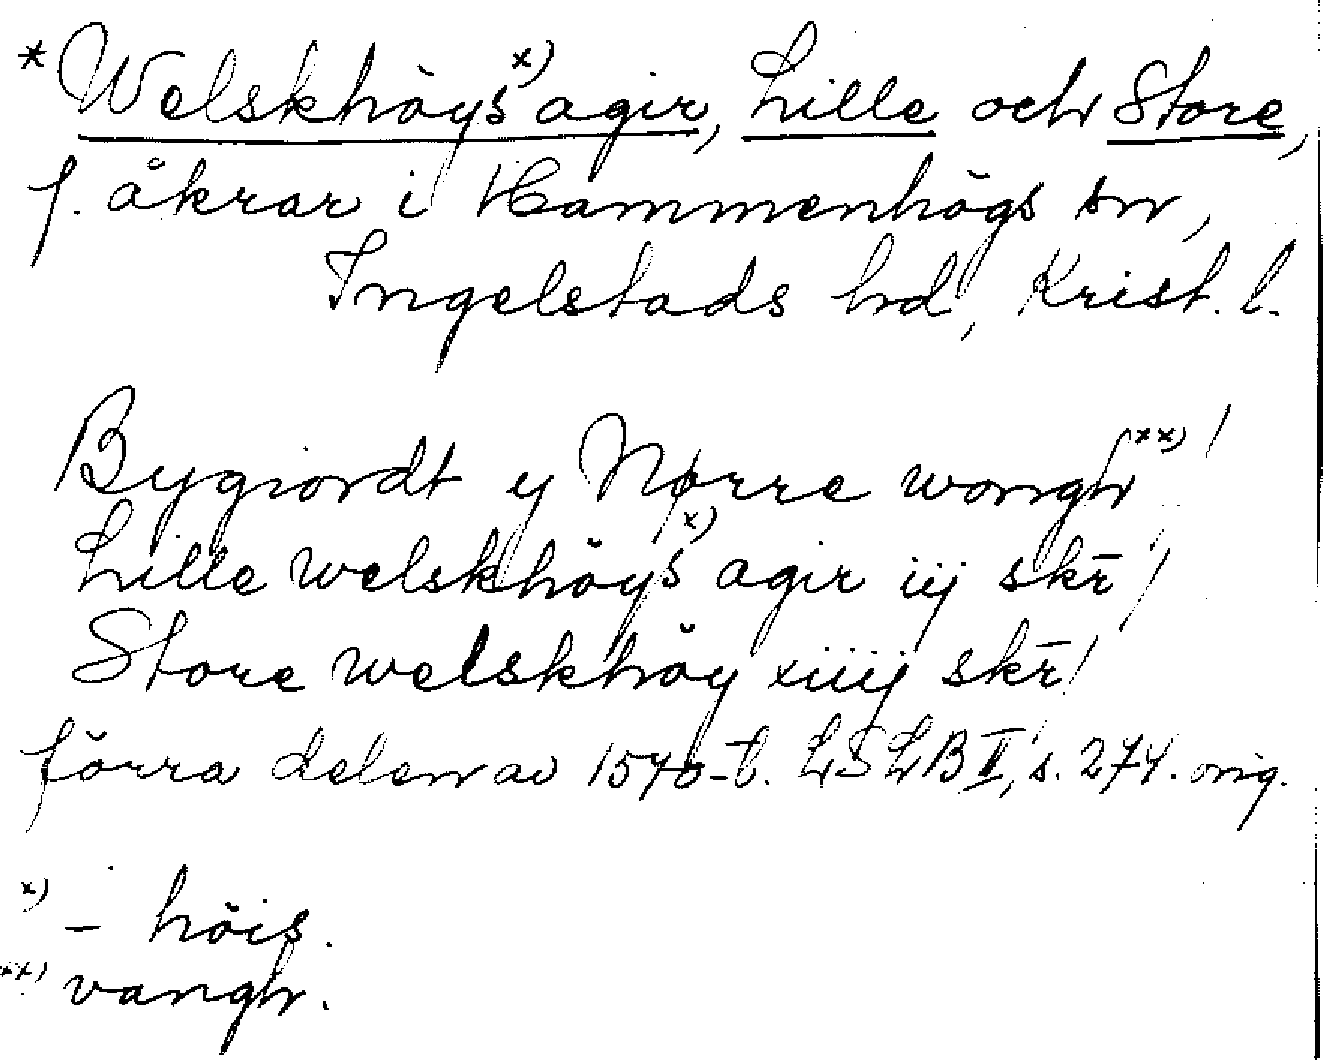 * Welskhöys x) agir, Lille och Store,
f. åkrar i Hammenhögs sn,
Ingelstads hd, Krist. l.
Bygiordt y Nørre wongh xx) /
Lille welskhöys x) agir iij skr̄ /
Store welskhöy xiiij skr̄ /
förra delen av 1570-t. LSLB II, s. 274. orig.
x) – höis.
xx) vangh.